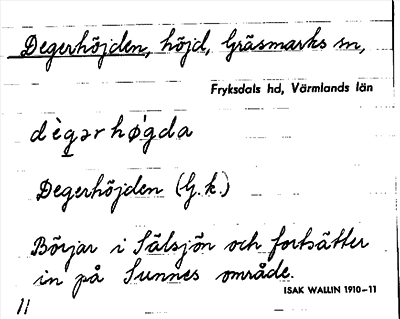 Degerhöjden, höjd, Gräsmarks sn,
Fryksdals hd, Värmlands län
dèg̱ər hǿgda
Degerhöjden (G.k.)
Börjar i Sälsjön och fortsätter
in på Sunnes område.
ISAK WALLIN 1910–11
11